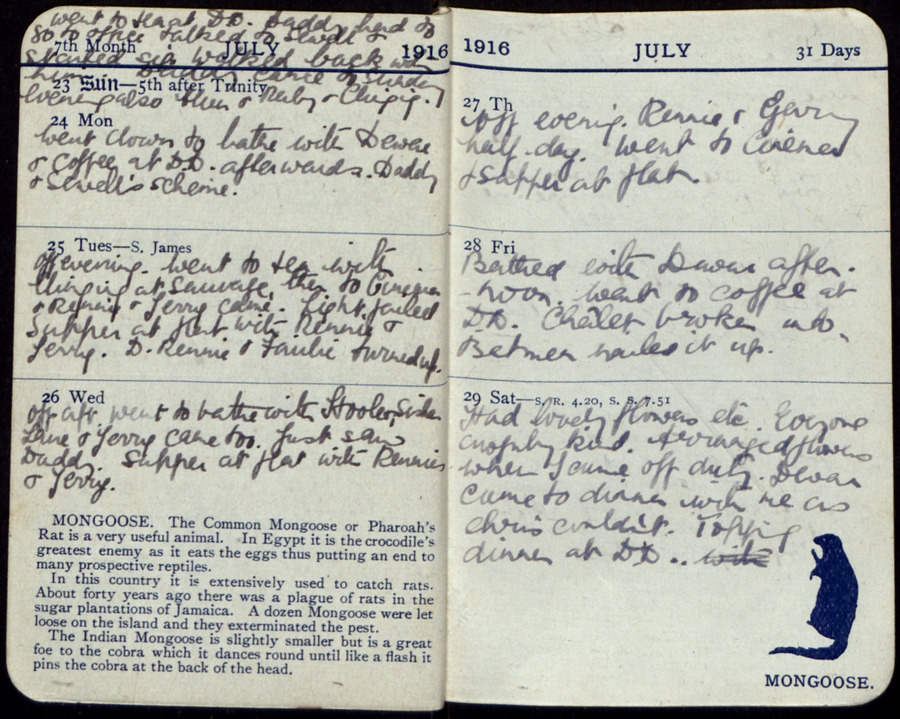 went to tea at D.D. Daddy had to
go to office talked to Sewell &
7th Month JULY 1916
started six walked back with
him. Daddy came to Sunday
23 Sun—5th after Trinity
evening also then & Ruby &
24 Mon
went down to bathe with Dewar
& coffee at D.D. afterwards. Daddy
& Sewell's scheme.
25 Tues—S. James
off evening. went to tea with
at Sauvage, then to Cinema
& Rennie & Gerry came. Light failed
Supper at flat with Rennie &
Gerry. D. Rennie & Fairlie turned up.
26 Wed
off aft. went to bathe with Sister
Lane & Gerry came too. Just saw
Daddy. Supper at flat with Rennie
& Gerry.
MONGOOSE. The Common Mongoose or Pharoah's
Rat is a very useful animal. In Egypt it is the crocodile's
greatest enemy as it eats the eggs thus putting an end to
many prospective reptiles.
In this country it is extensively used to catch rats.
About forty years ago there was a plague of rats in the
sugar plantations of Jamaica. A dozen Mongoose were let
loose on the island and they exterminated the pest.
The Indian Mongoose is slightly smaller but is a great
foe to the cobra which it dances round until like a flash it
pins the cobra at the back of the head.
1916 JULY 31 Days
27 Th
off evening. Rennie & Gerry
half-day. Went to Cinema
& supper at flat.
28 Fri
Bathed with Dewar after-
-noon. went to coffee at
D.D. Chalet broken into.
Batmen nailed it up.
29 Sat—S. R. 4.20, S. S. 7.51
Had lovely flowers etc. Everyone
awfully kind. Arranged flowers
when I came off duty. Dewar
came to dinner with me as
Chris couldn't. Topping
dinner at D.D.. with
MONGOOSE.